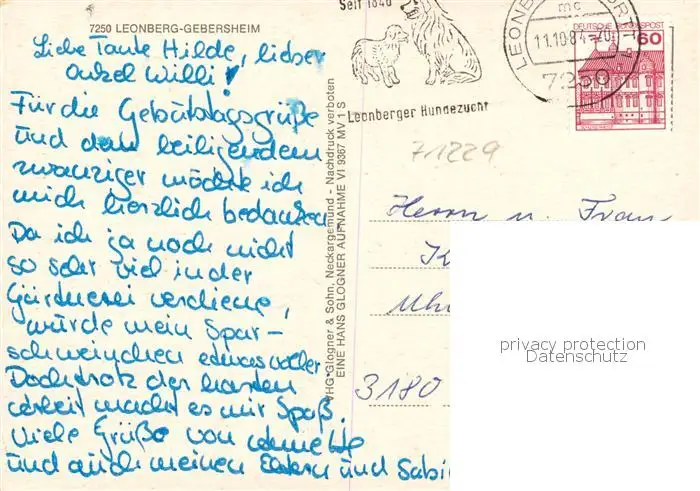 7250 LEONBERG-GEBERSHEIM
Liebe Tante Hilde, lieber
Onkel Willi!
Für die Geburtstagsgrüße
und den beiligenden
zwanziger möchte ich
mich herzlich bedanken
Da ich ja noch nicht
so sehr viel in der
Gärtnerei verdiene,
würde mein Spar-
schweinchen etwas voller.
Doch trotz der harten
Arbeit macht es mir Spaß.
Viele Grüße von
und auch meinen Eltern und Sabi
VHG: Glogner & Sohn, Neckargemünd - Nachdruck verboten
EINE HANS GLOGNER AUFNAHME VI 9367 MV 1 S
Seit 1846
Leonberger Hundezucht
LEONBERG
mc
11.10.84-20
7250
DEUTSCHE BUNDESPOST
60
71229
Herrn u. Frau
K
Uhr
3180
privacy protection
Datenschutz